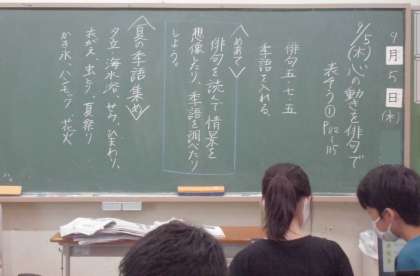 9月5日(木)
9/5(木)心の動きを俳句で
表そう① P.112~115
俳句 五・七・五
季語を入れる。
<めあて>
俳句を読んで情景を
想像したり、季語を調べたり
しよう。
<夏の季語集め>
夕立、海水浴、せみ、ひまわり、
虫とり、夏祭り
かき氷、ハンモック、花火